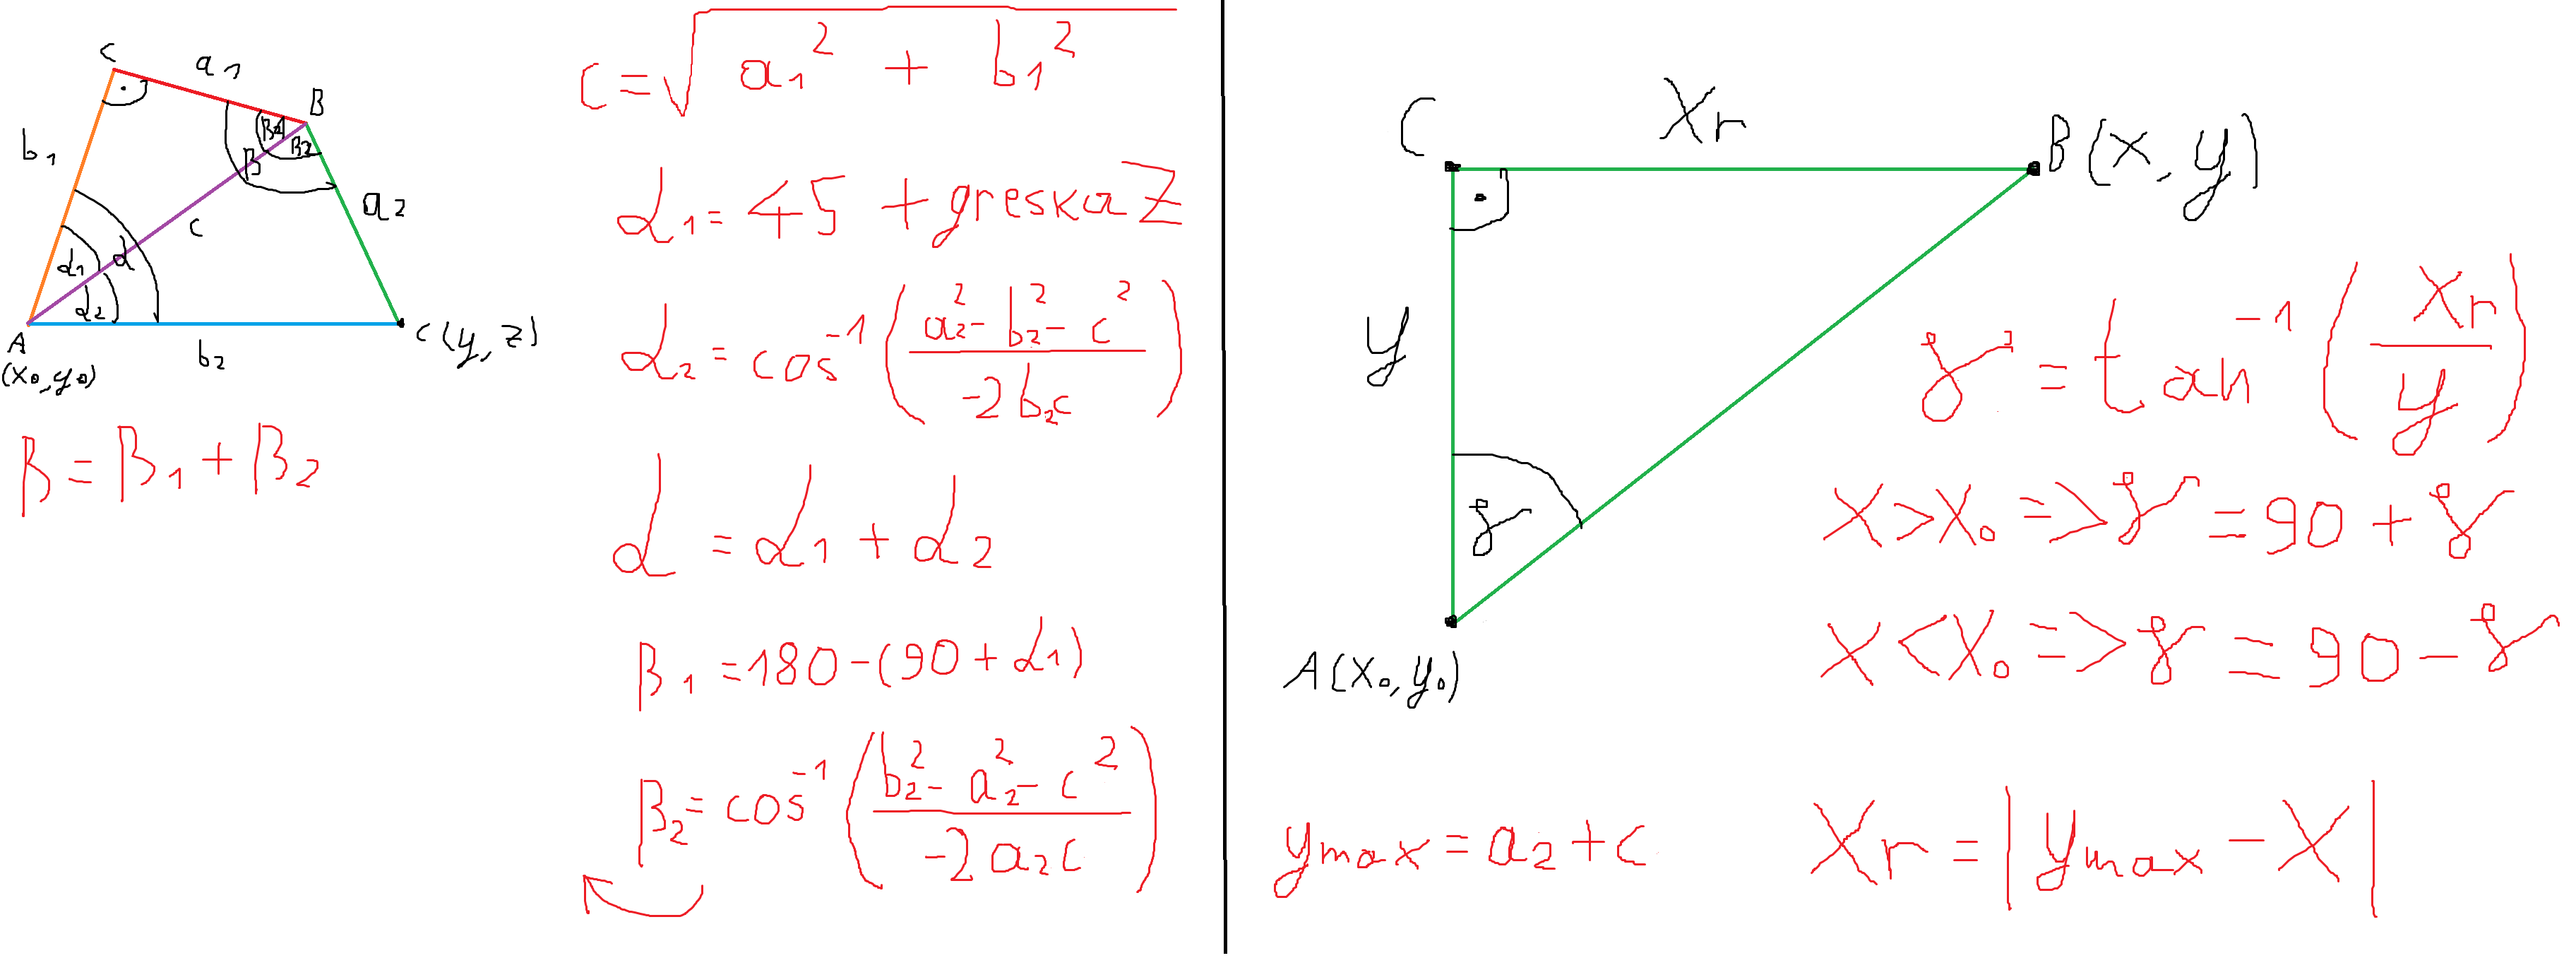 C
a₁
B
b₁
β₁
β₂
β
a₂
c
α₁
α
α₂
A
(x₀, y₀)
b₂
C(y, z)
β = β₁ + β₂
c = √(a₁² + b₁²)
α₁ = 45 + greska Z
α₂ = cos⁻¹((a₂² - b₂² - c²) / (-2b₂c))
α = α₁ + α₂
β₁ = 180 - (90 + α₁)
β₂ = cos⁻¹((b₂² - a₂² - c²) / (-2a₂c))
C
Xr
B(x, y)
y
γ
A(x₀, y₀)
γ = tan⁻¹(Xr / y)
x > x₀ => γ = 90 + γ
x < x₀ => γ = 90 - γ
ymax = a₂ + c
Xr = |ymax - X|